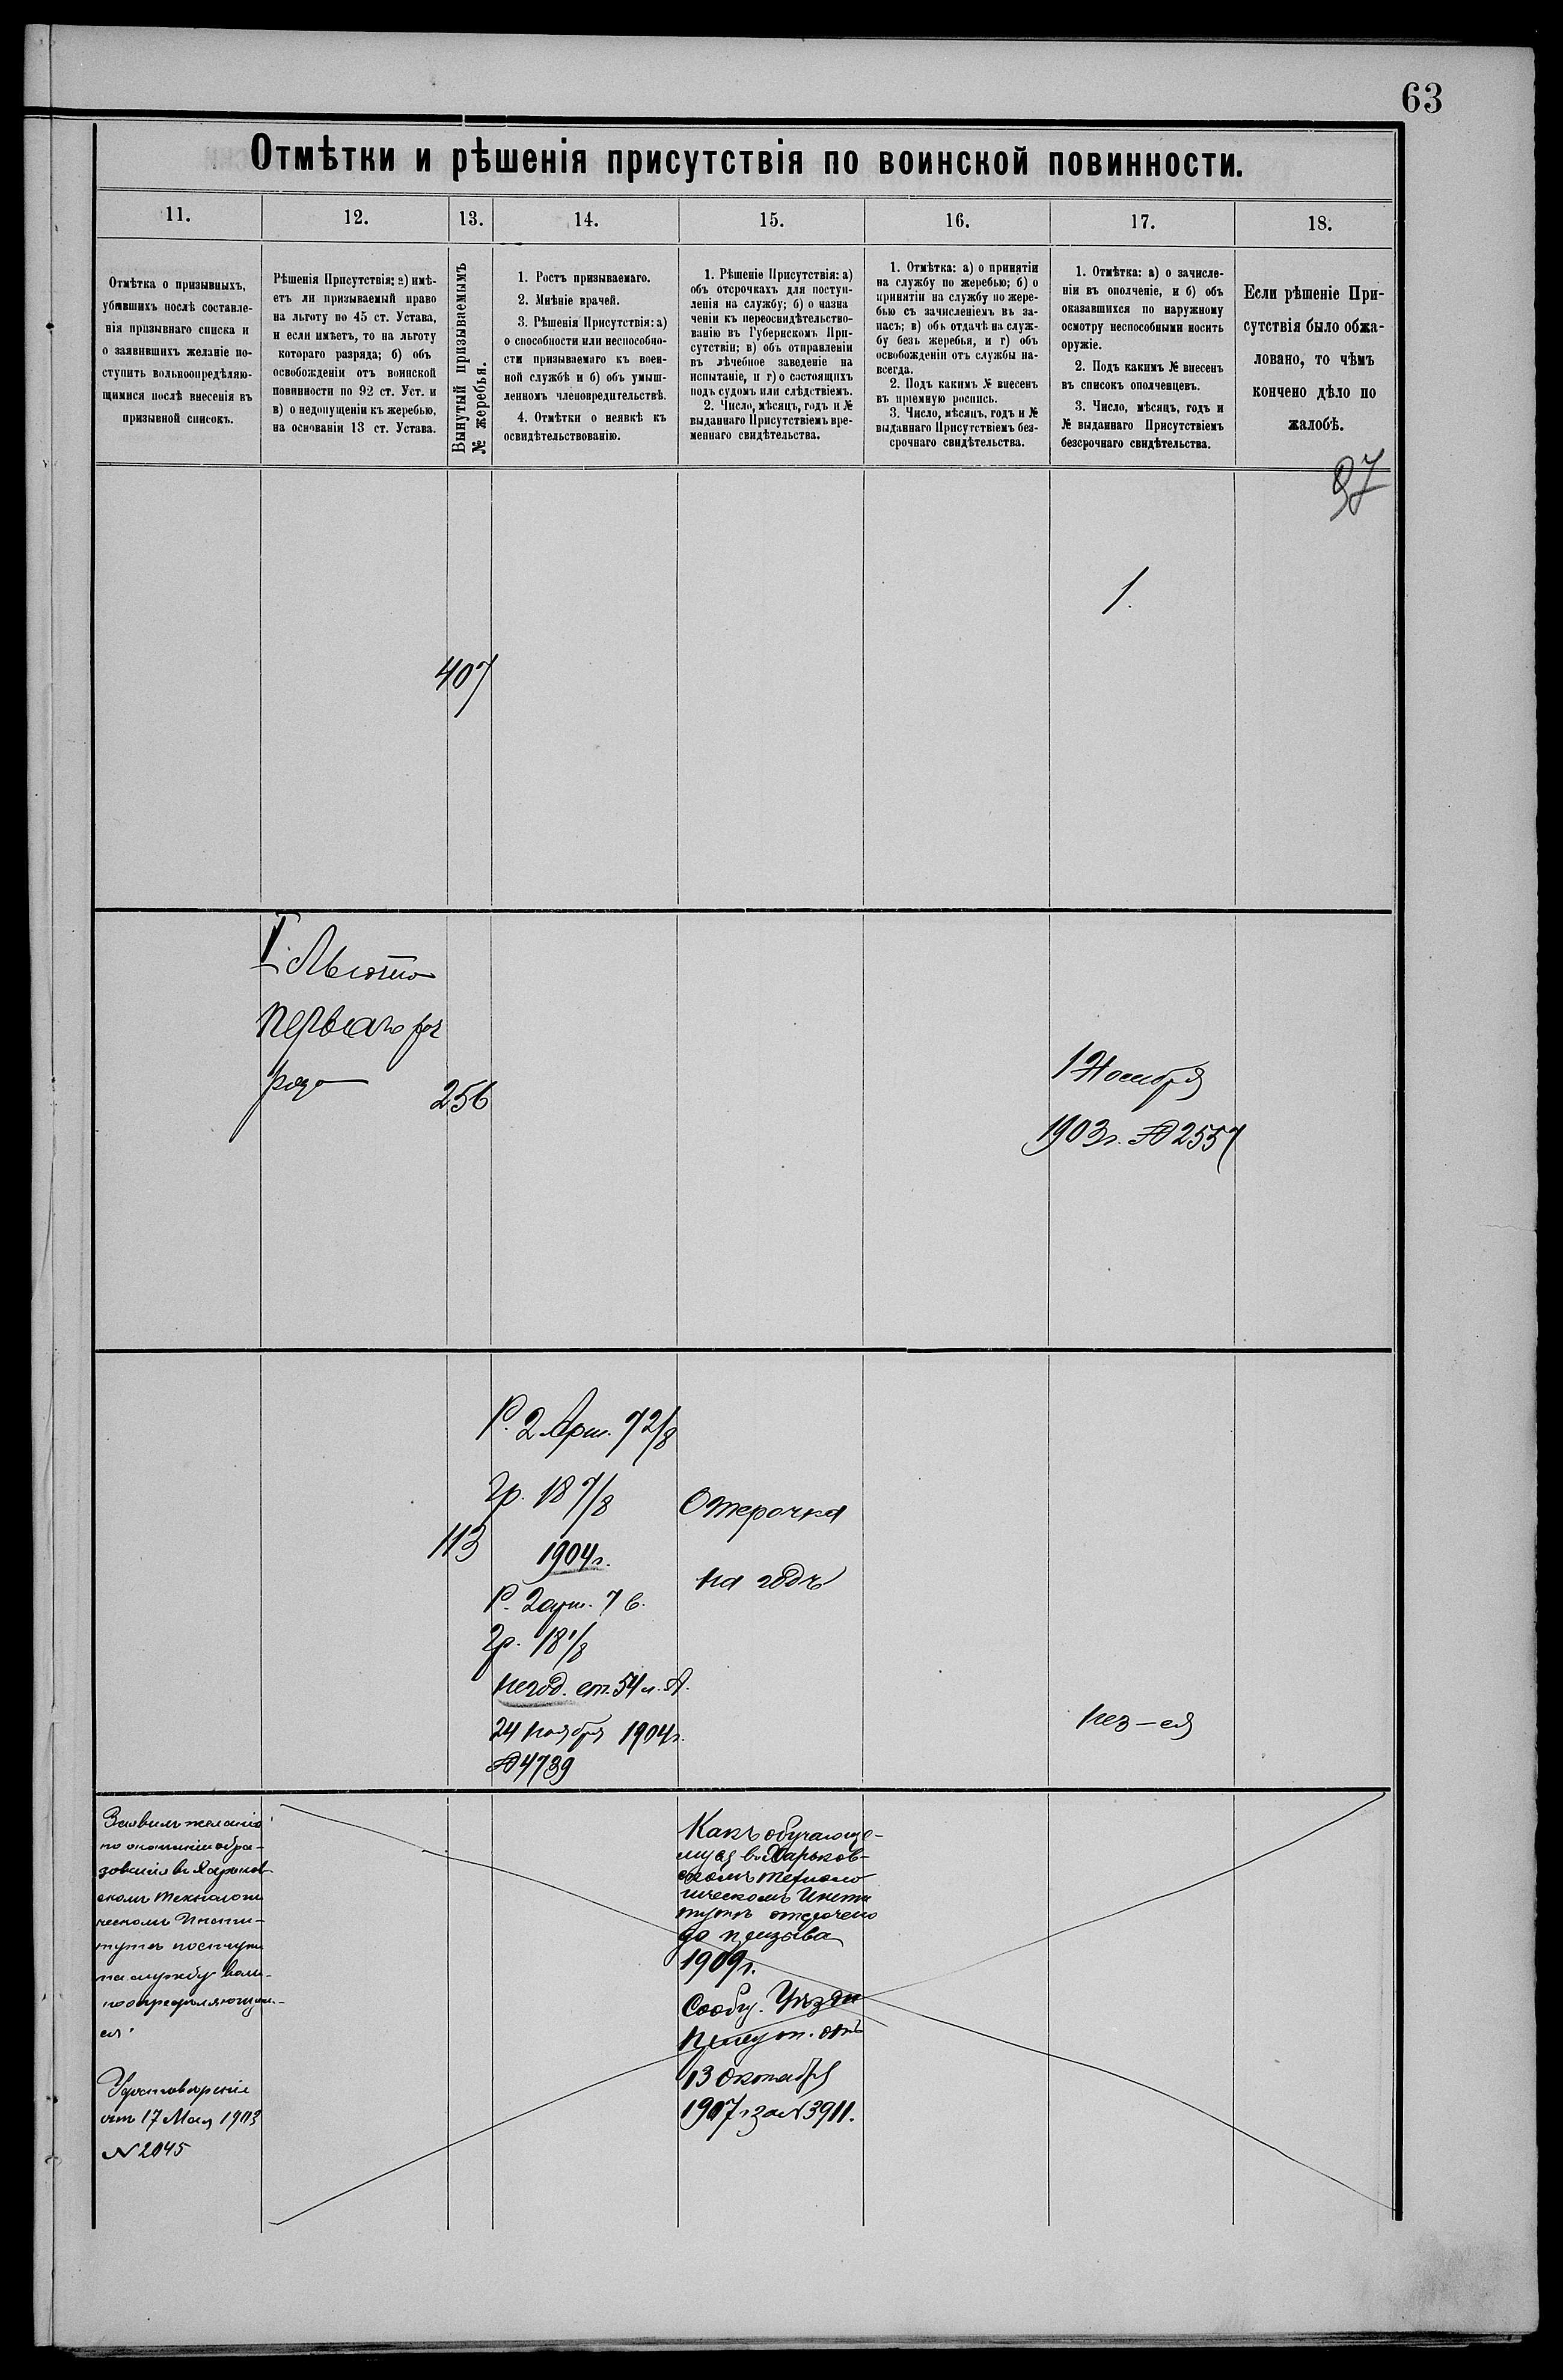 63
Отмѣтки и рѣшенія присутствія по воинской повинности.
11.
12.
13.
14.
15.
16.
17.
18.
Отмѣтка о призывныхъ,
убывшихъ послѣ составле-
нія призывнаго списка и
о заявившихъ желаніе по-
ступить вольноопредѣляю-
щимися послѣ внесенія въ
призывной списокъ.
Рѣшенія Присутствія: а) имѣ-
етъ ли призываемый право
на льготу по 45 ст. Устава,
и если имѣетъ, то на льготу
котораго разряда; б) объ
освобожденіи отъ воинской
повинности по 92 ст. Уст. и
в) о недопущеніи къ жеребью,
на основаніи 13 ст. Устава.
Вынутый призываемымъ
№ жеребья.
1. Ростъ призываемаго.
2. Мнѣніе врачей.
3. Рѣшенія Присутствія: а)
о способности или неспособно-
сти призываемаго къ воен-
ной службѣ и б) объ умыш-
ленномъ членовредительствѣ.
4. Отмѣтки о неявкѣ къ
освидѣтельствованію.
1. Рѣшеніе Присутствія: а)
объ отсрочкахъ для поступ-
ленія на службу; б) о назна
ченіи къ переосвидѣтельство-
ванію въ Губернскомъ При-
сутствіи; в) объ отправленіи
въ лѣчебное заведеніе на
испытаніе, и г) о состоящихъ
подъ судомъ или слѣдствіемъ.
2. Число, мѣсяцъ, годъ и №
выданнаго Присутствіемъ вре-
меннаго свидѣтельства.
1. Отмѣтка: а) о принятіи
на службу по жеребью; б) о
принятіи на службу по жере-
бью съ зачисленіемъ въ за-
пасъ; в) объ отдачѣ на служ-
бу безъ жеребья, и г) объ
освобожденіи отъ службы на-
всегда.
2. Подъ какимъ № внесенъ
въ пріемную роспись.
3. Число, мѣсяцъ, годъ и №
выданнаго Присутствіемъ без-
срочнаго свидѣтельства.
1. Отмѣтка: а) о зачисле-
ніи въ ополченіе, и б) объ
оказавшихся по наружному
осмотру неспособными носить
оружіе.
2. Подъ какимъ № внесенъ
въ списокъ ополченцевъ.
3. Число, мѣсяцъ, годъ и
№ выданнаго Присутствіемъ
безсрочнаго свидѣтельства.
Если рѣшеніе При-
сутствія было обжа-
ловано, то чѣмъ
кончено дѣло по
жалобѣ.
97
1.
407
I
перваго раз
ряда
256
1 Ноября
1903 г. № 2557
Р. 2 арш. 7 2/8
Гр. 18 7/8
113
1904 г.
Р. 2 арш. 7 в.
Гр. 18 1/8
негод. ст. 54 л. А.
24 ноября 1904 г.
№ 4739
Отсрочка
на годъ
Заявилъ желаніе
по окончаніи обра-
зованія въ Харьков-
скомъ Технологи
ческомъ Инсти-
тутѣ поступи
на службу воль-
ноопредѣляющим-
ся.
Удостовѣреніе
отъ 17 Мая 1903
№ 2045
Какъ обучающе-
муся въ Харьков-
скомъ Техноло
гическомъ Инсти
тутѣ отсрочено
до призыва
1909 г.
Сообщ. Уѣздн
Присут. отъ
13 Октября
1907 г за № 3911.